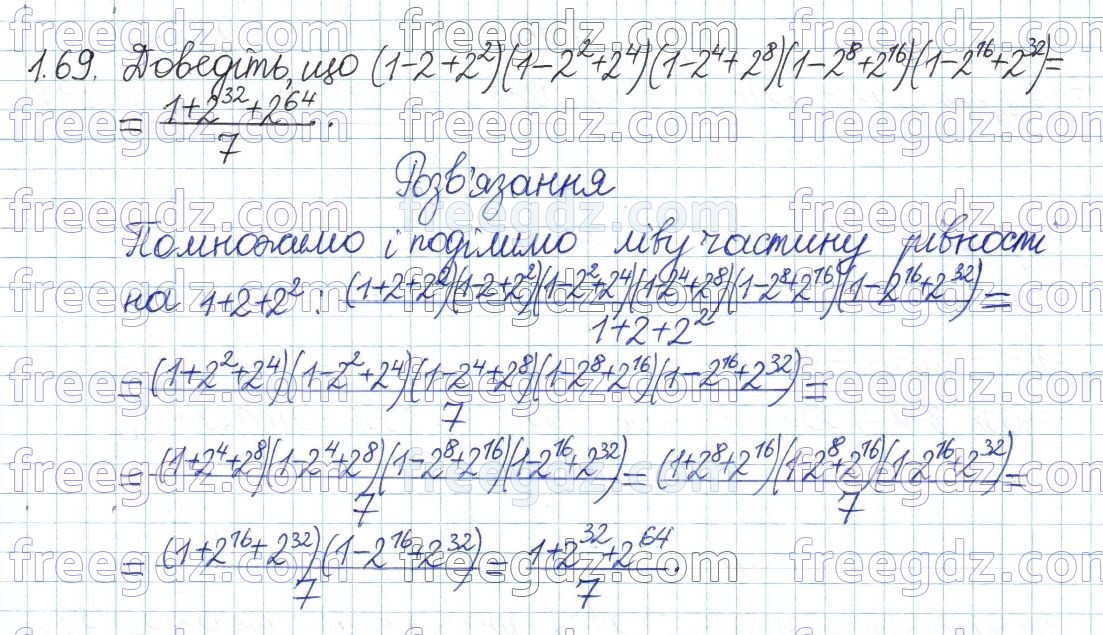 1.69. Доведіть, що (1-2+2²)(1-2²+2⁴)(1-2⁴+2⁸)(1-2⁸+2¹⁶)(1-2¹⁶+2³²)=
= (1+2³²+2⁶⁴)/7.
Розв'язання
Помножимо і поділимо ліву частину рівності
на 1+2+2²: ((1+2+2²)(1-2+2²)(1-2²+2⁴)(1-2⁴+2⁸)(1-2⁸+2¹⁶)(1-2¹⁶+2³²))/(1+2+2²) =
= ((1+2²+2⁴)(1-2²+2⁴)(1-2⁴+2⁸)(1-2⁸+2¹⁶)(1-2¹⁶+2³²))/7 =
= ((1+2⁴+2⁸)(1-2⁴+2⁸)(1-2⁸+2¹⁶)(1-2¹⁶+2³²))/7 = ((1+2⁸+2¹⁶)(1-2⁸+2¹⁶)(1-2¹⁶+2³²))/7 =
= ((1+2¹⁶+2³²)(1-2¹⁶+2³²))/7 = (1+2³²+2⁶⁴)/7.
freegdz.com